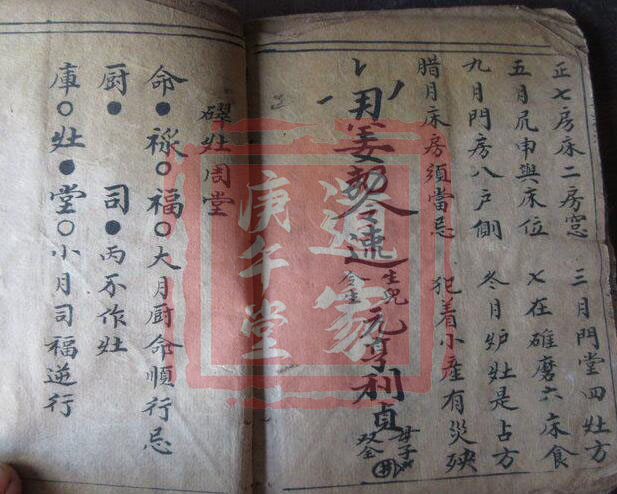 正七房床二房窓 三月門堂四灶方
五月房申與床位 七在碓磨六床食
九月門房八戶側 冬月炉灶是占方
腊月床房須當忌 犯着小産有災殃
用姜 速 元亨利貞
生兒
母子
双全
灶周堂
命●禄○福○大月厨命順行忌
厨● 司●丙不作灶
庫○灶●堂○小月司福逆行
道家
庚午堂